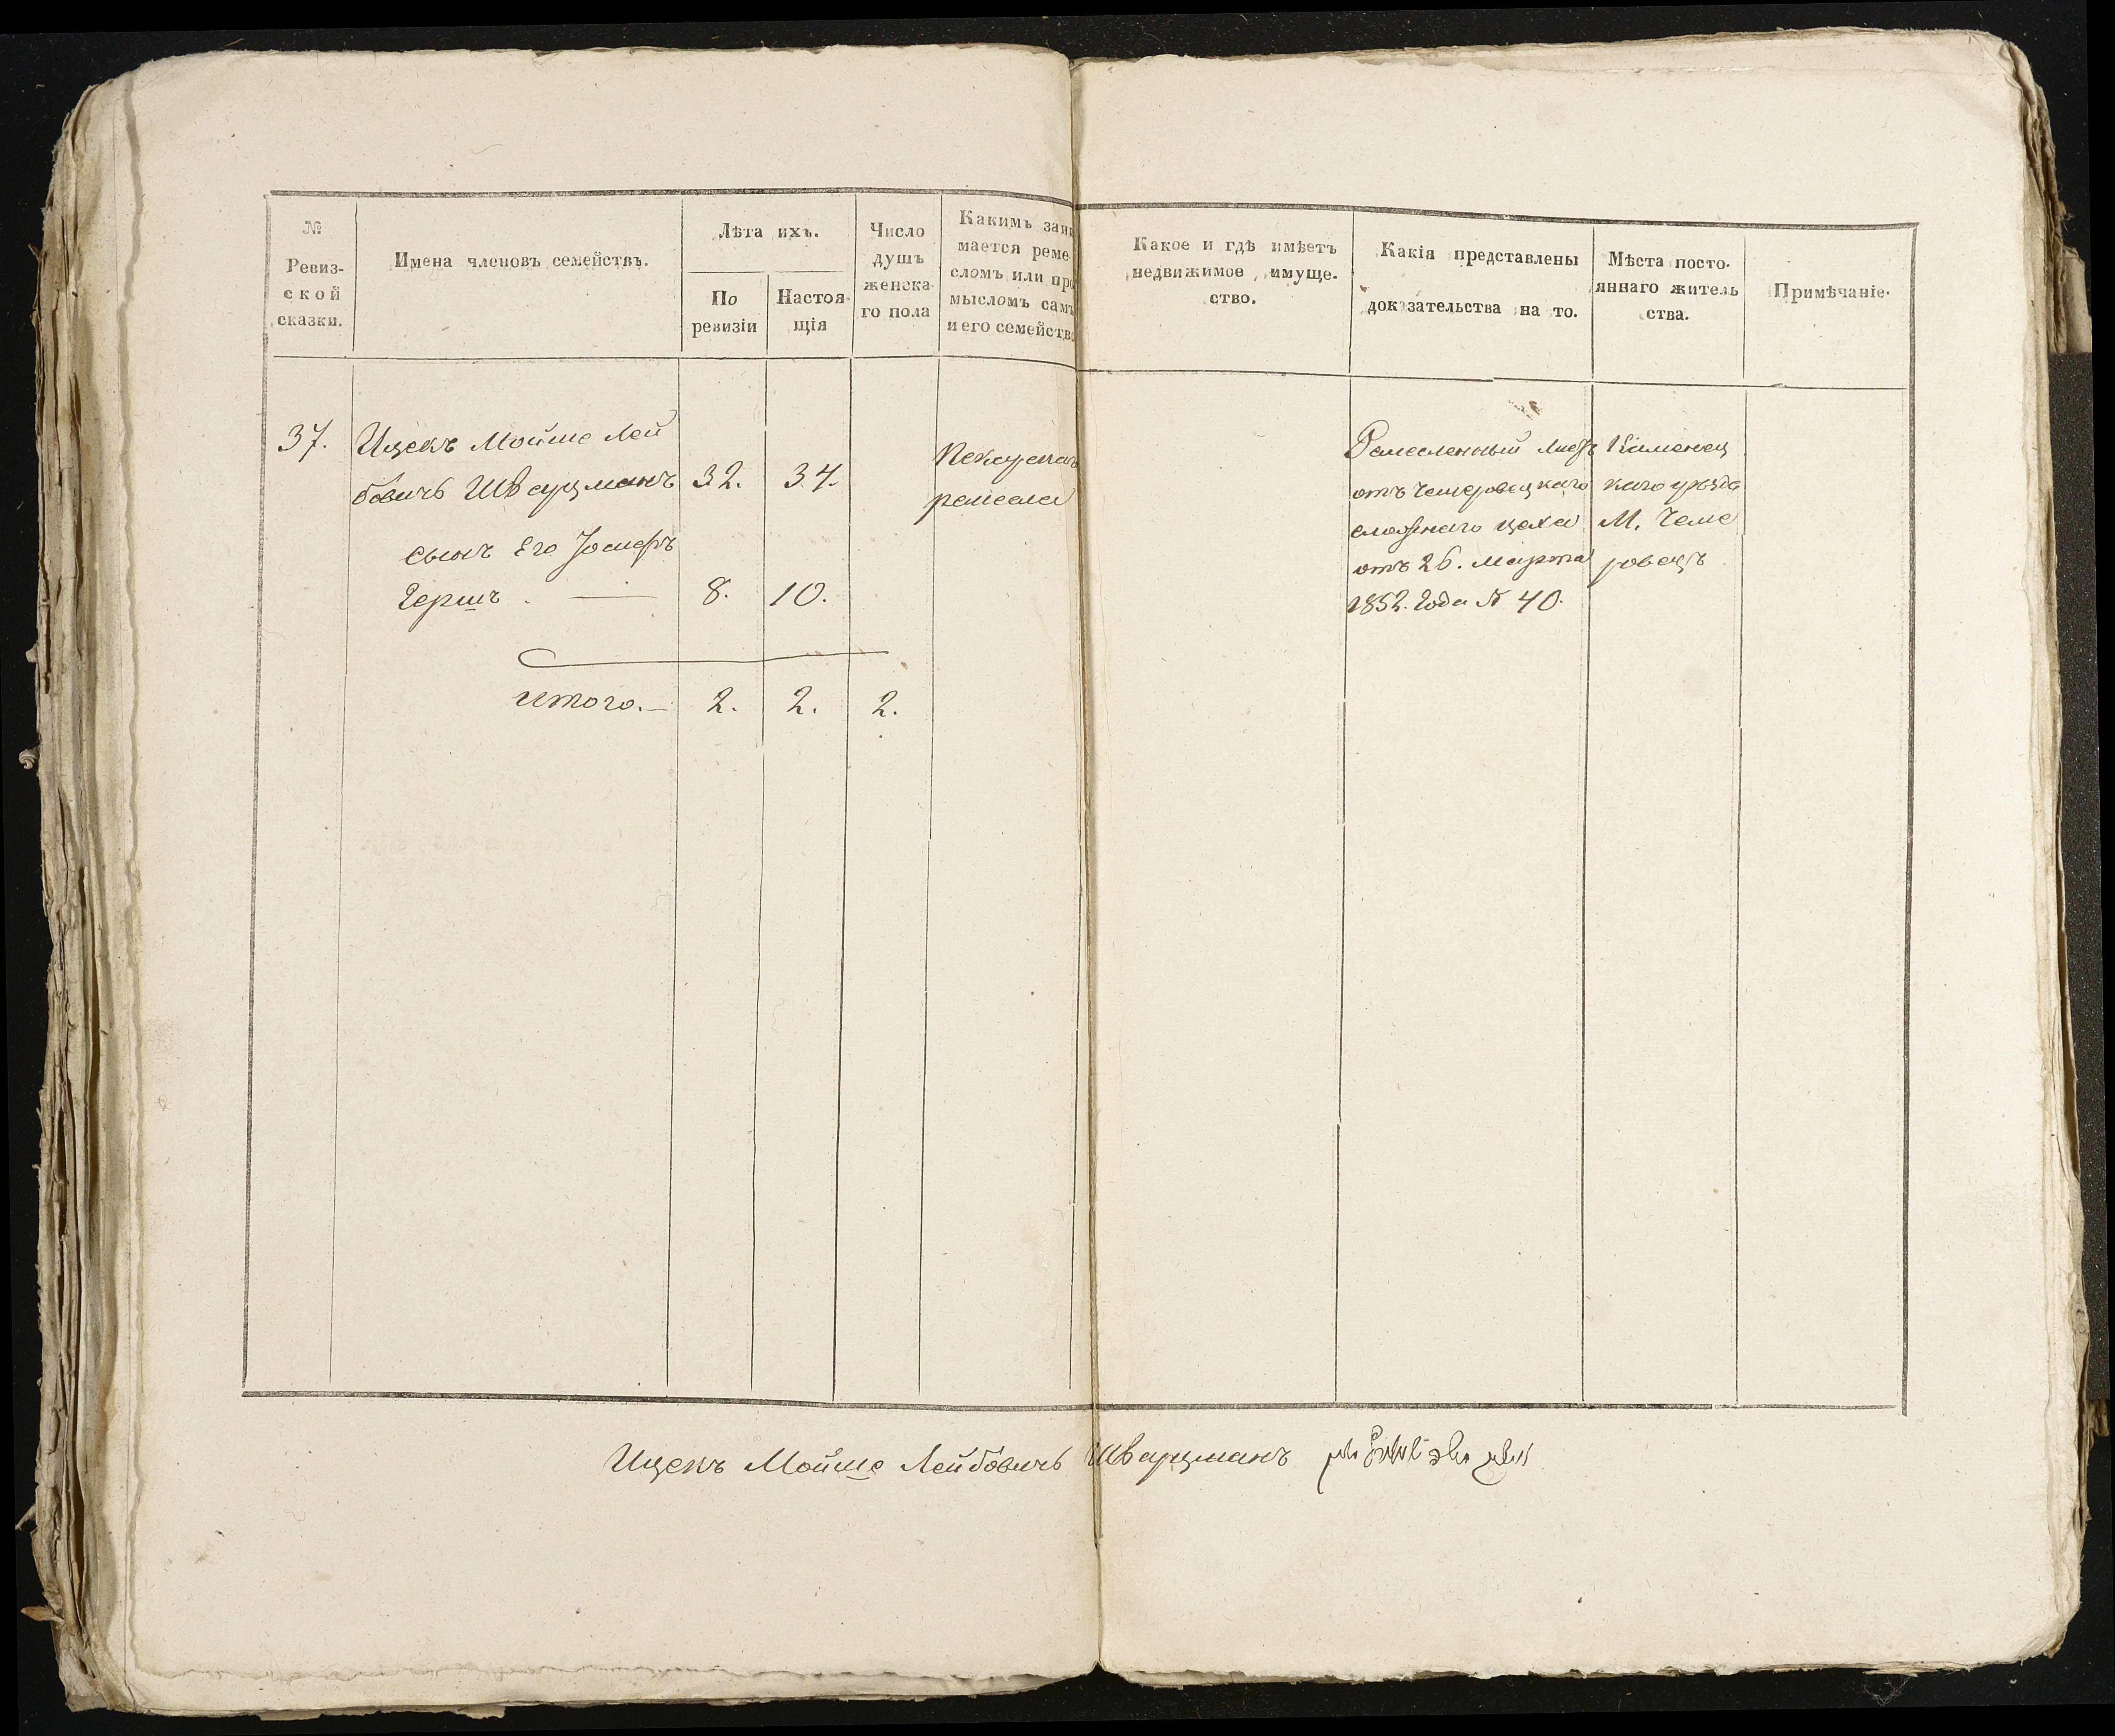 №
Ревиз-
ской
сказки.
Имена членовъ семействъ.
Лѣта ихъ.
По
ревизіи
Настоя-
щія
Число
душъ
женска-
го пола
Какимъ зани
мается реме
сломъ или про
мысломъ самъ
и его семейство
Какое и гдѣ имѣетъ
недвижимое имуще-
ство.
Какія представлены
доказательства на то.
Мѣста посто-
яннаго житель
ства.
Примѣчаніе.
37.
Ицекъ Мойше Лей
бовичъ Шварцманъ 32. 34.
сынъ Его Іосифъ
Гершъ . — 8. 10.
итого. — 2. 2. 2.
ремесла
Ремесленный Листъ
отъ Чемеровецкаго
сложнаго цеха
отъ 26. марта
1852. Года № 40.
Каменец
каго уѣзда
М. Чеме
ровецъ
Ицекъ Мойше Лейбовичъ Шварцманъ